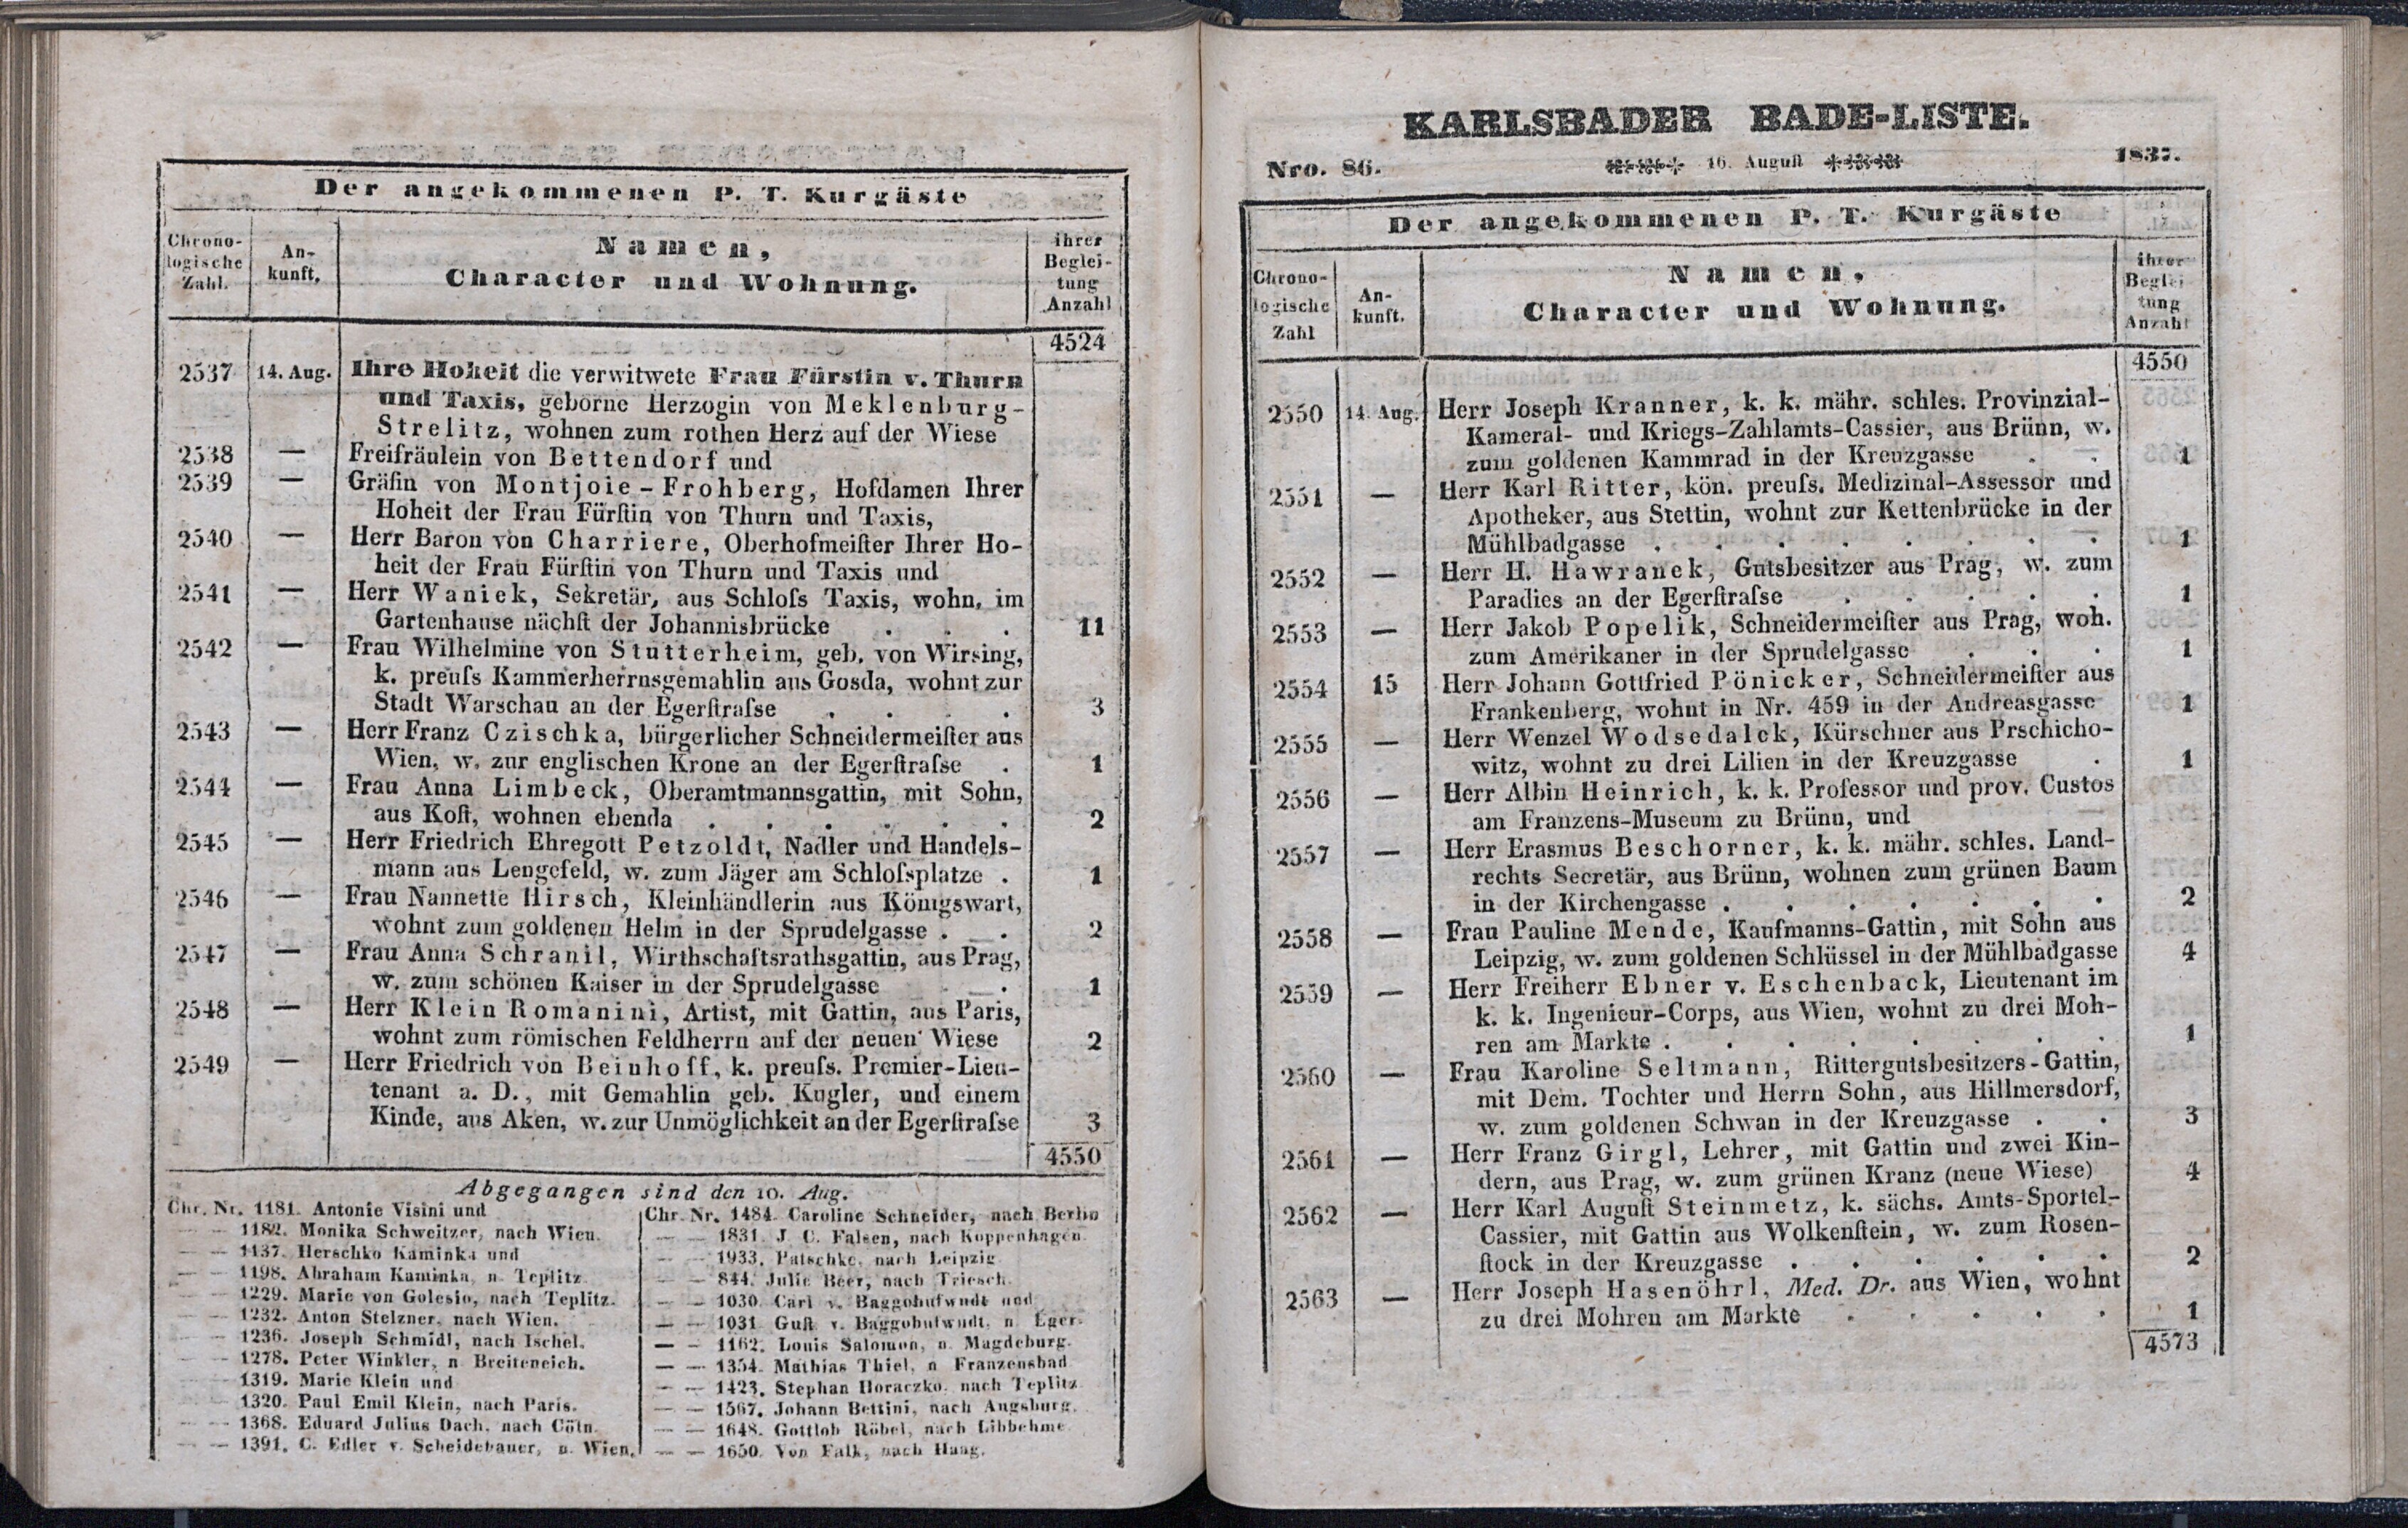 Der angekommenen P. T. Kurgäste
Chrono-
logische
Zahl.
An-
kunft,
Namen,
Character und Wohnung.
ihrer
Beglei-
tung
Anzahl
4524
2537 14. Aug. Ihre Hoheit die verwitwete Frau Fürstin v. Thurn
und Taxis, geborne Herzogin von Meklenburg-
Strelitz, wohnen zum rothen Herz auf der Wiese
2538 — Freifräulein von Bettendorf und
2539 — Gräfin von Montjoie-Frohberg, Hofdamen Ihrer
Hoheit der Frau Fürſtin von Thurn und Taxis,
2540 — Herr Baron von Charriere, Oberhofmeiſter Ihrer Ho-
heit der Frau Fürſtin von Thurn und Taxis und
2541 — Herr Waniek, Sekretär, aus Schloſs Taxis, wohn. im
Gartenhause nächſt der Johannisbrücke . . . 11
2542 — Frau Wilhelmine von Stutterheim, geb. von Wirsing,
k. preuſs Kammerherrnsgemahlin aus Gosda, wohnt zur
Stadt Warschau an der Egerſtraſse . . . . 3
2543 — Herr Franz Czischka, bürgerlicher Schneidermeiſter aus
Wien, w. zur englischen Krone an der Egerſtraſse . 1
2544 — Frau Anna Limbeck, Oberamtmannsgattin, mit Sohn,
aus Koſt, wohnen ebenda . . . . . . 2
2545 — Herr Friedrich Ehregott Petzoldt, Nadler und Handels-
mann aus Lengefeld, w. zum Jäger am Schloſsplatze . 1
2546 — Frau Nannette Hirsch, Kleinhändlerin aus Königswart,
wohnt zum goldenen Helm in der Sprudelgasse . . 2
2547 — Frau Anna Schranil, Wirthschaftsrathsgattin, aus Prag,
w. zum schönen Kaiser in der Sprudelgasse . 1
2548 — Herr Klein Romanini, Artist, mit Gattin, aus Paris,
wohnt zum römischen Feldherrn auf der neuen Wiese 2
2549 — Herr Friedrich von Beinhoff, k. preuſs. Premier-Lieu-
tenant a. D., mit Gemahlin geb. Kugler, und einem
Kinde, aus Aken, w. zur Unmöglichkeit an der Egerſtraſse 3
4550
Abgegangen sind den 10. Aug.
Chr. Nr. 1181. Antonie Visini und
— — 1182. Monika Schweitzer, nach Wien.
— — 1137. Herschko Kaminka und
— — 1198. Abraham Kaminka, n. Teplitz.
— — 1229. Marie von Golesin, nach Teplitz.
— — 1232. Anton Stelzner, nach Wien.
— — 1236. Joseph Schmidl, nach Ischel.
— — 1278. Peter Winkler, n. Breiteneich.
— — 1319. Marie Klein und
— — 1320. Paul Emil Klein, nach Paris.
— — 1368. Eduard Julius Dach, nach Cöln.
— — 1391. C. Edler v. Scheidebauer, n. Wien.
Chr. Nr. 1484. Caroline Schneider, nach Berlin
— — 1831. J. C. Falsen, nach Koppenhagen.
— — 1933. Patschke, nach Leipzig
— — 844. Julie Beer, nach Triesch.
— — 1030. Carl v. Baggohufwudt und
— — 1031 Guſt. v. Baggohufwudt, n. Eger.
— — 1162. Louis Salomon, n. Magdeburg.
— — 1354. Mathias Thiel, n Franzensbad
— — 1423. Stephan Horaczko, nach Teplitz
— — 1567. Johann Bettini, nach Augsburg.
— — 1648. Gottlob Röbel, nach Libbehme
— — 1650. Von Falk, nach Haag.
KARLSBADER BADE-LISTE.
Nro. 86. 16. Auguſt 1837.
Der angekommenen P. T. Kurgäste
Chrono-
logische
Zahl
An-
kunft.
Namen,
Character und Wohnung.
ihrer
Beglei-
tung
Anzahl
4550
2550 14. Aug. Herr Joseph Kranner, k. k. mähr. schles. Provinzial-
Kameral- und Kriegs-Zahlamts-Cassier, aus Brünn, w.
zum goldenen Kammrad in der Kreuzgasse . . 1
2551 — Herr Karl Ritter, kön. preuſs. Medizinal-Assessor und
Apotheker, aus Stettin, wohnt zur Kettenbrücke in der
Mühlbadgasse . . . . . . . . 1
2552 — Herr H. Hawranek, Gutsbesitzer aus Prag, w. zum
Paradies an der Egerſtraſse . . . . . 1
2553 — Herr Jakob Popelik, Schneidermeiſter aus Prag, woh.
zum Amerikaner in der Sprudelgasse . . . 1
2554 15 Herr Johann Gottfried Pönicker, Schneidermeiſter aus
Frankenberg, wohnt in Nr. 459 in der Andreasgasse 1
2555 — Herr Wenzel Wodsedalek, Kürschner aus Prschicho-
witz, wohnt zu drei Lilien in der Kreuzgasse . 1
2556 — Herr Albin Heinrich, k. k. Professor und prov. Custos
am Franzens-Museum zu Brünn, und
2557 — Herr Erasmus Beschorner, k. k. mähr. schles. Land-
rechts Secretär, aus Brünn, wohnen zum grünen Baum
in der Kirchengasse . . . . . . . 2
2558 — Frau Pauline Mende, Kaufmanns-Gattin, mit Sohn aus
Leipzig, w. zum goldenen Schlüssel in der Mühlbadgasse 4
2559 — Herr Freiherr Ebner v. Eschenback, Lieutenant im
k. k. Ingenieur-Corps, aus Wien, wohnt zu drei Moh-
ren am Markte . . . . . . . . 1
2560 — Frau Karoline Seltmann, Rittergutsbesitzers-Gattin,
mit Dem. Tochter und Herrn Sohn, aus Hillmersdorf,
w. zum goldenen Schwan in der Kreuzgasse . . 3
2561 — Herr Franz Girgl, Lehrer, mit Gattin und zwei Kin-
dern, aus Prag, w. zum grünen Kranz (neue Wiese) 4
2562 — Herr Karl Auguſt Steinmetz, k. sächs. Amts-Sportel-
Cassier, mit Gattin aus Wolkenſtein, w. zum Rosen-
ſtock in der Kreuzgasse . . . . . . 2
2563 — Herr Joseph Hasenöhrl, Med. Dr. aus Wien, wohnt
zu drei Mohren am Markte . . . . . 1
4573